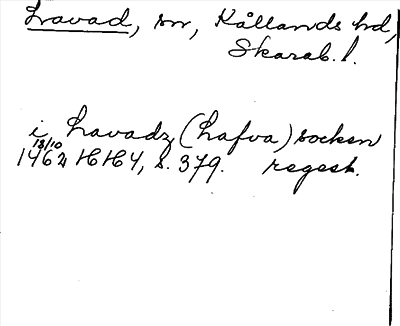 Lavad, sn, Kållands hd,
Skarab. l.
i Lavadz (Lafva) socken
18/10
1462 HH4, s. 379. regest.